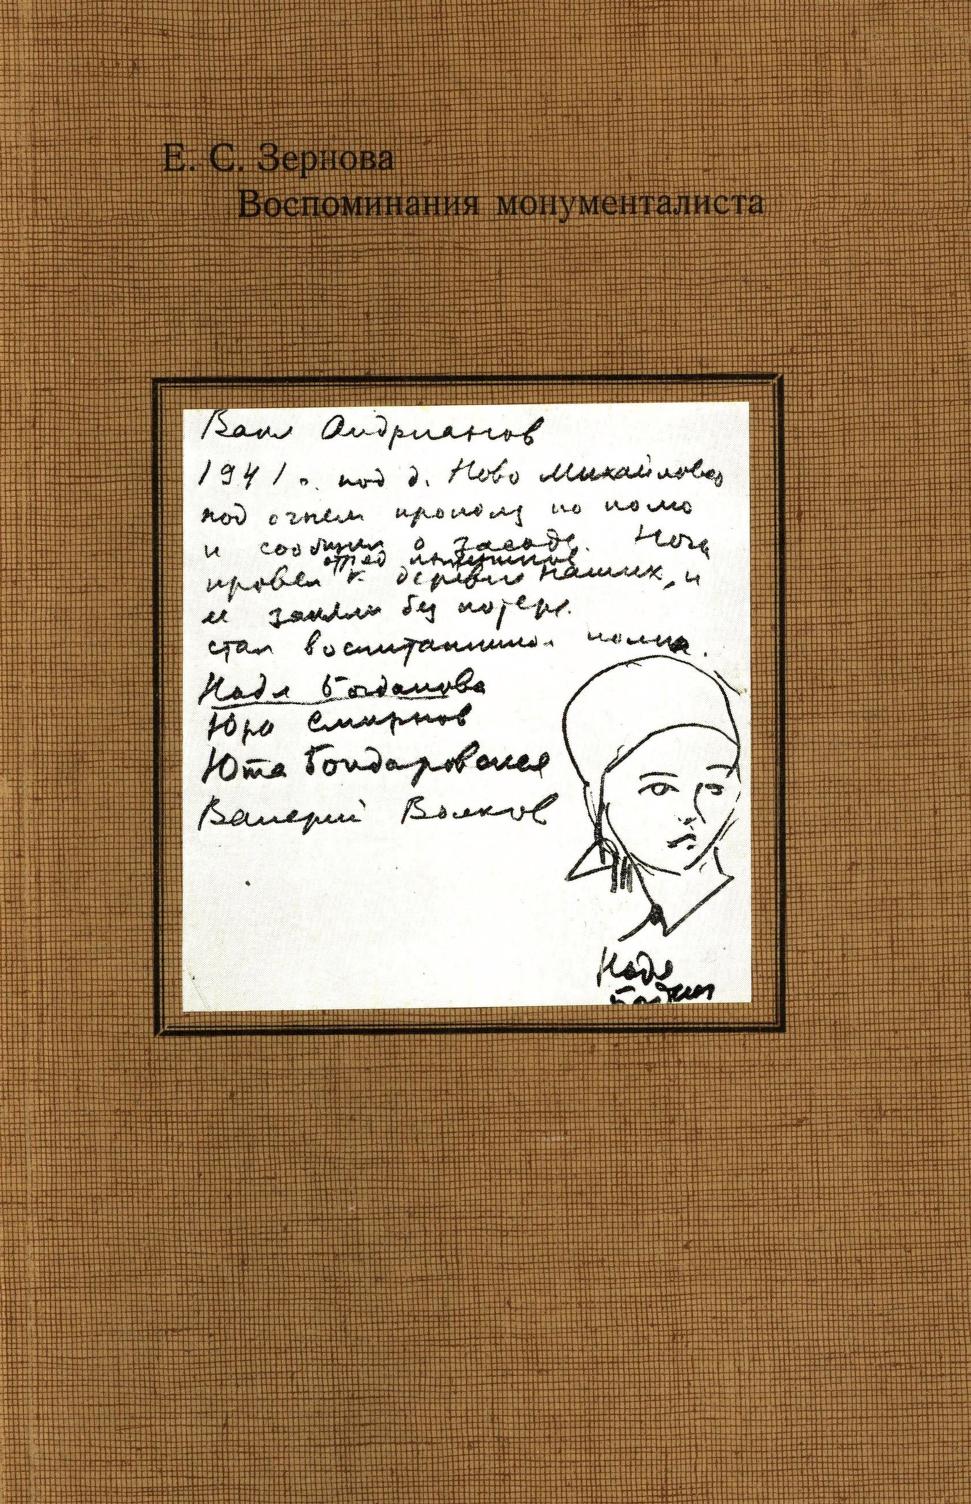 Е. С. Зернова
Воспоминания монументалиста
Ваня Андрианов
1941 г. под д. Ново Михайловка
под огнем прополз по полю
и сообщил о засаде. Ночью
отряд
провел к деревне наших, и
ее заняли без потерь.
стал воспитанником полка.
Надя Богданова
Юра Смирнов
Юта Бондаровская
Валерий Волков
Надя